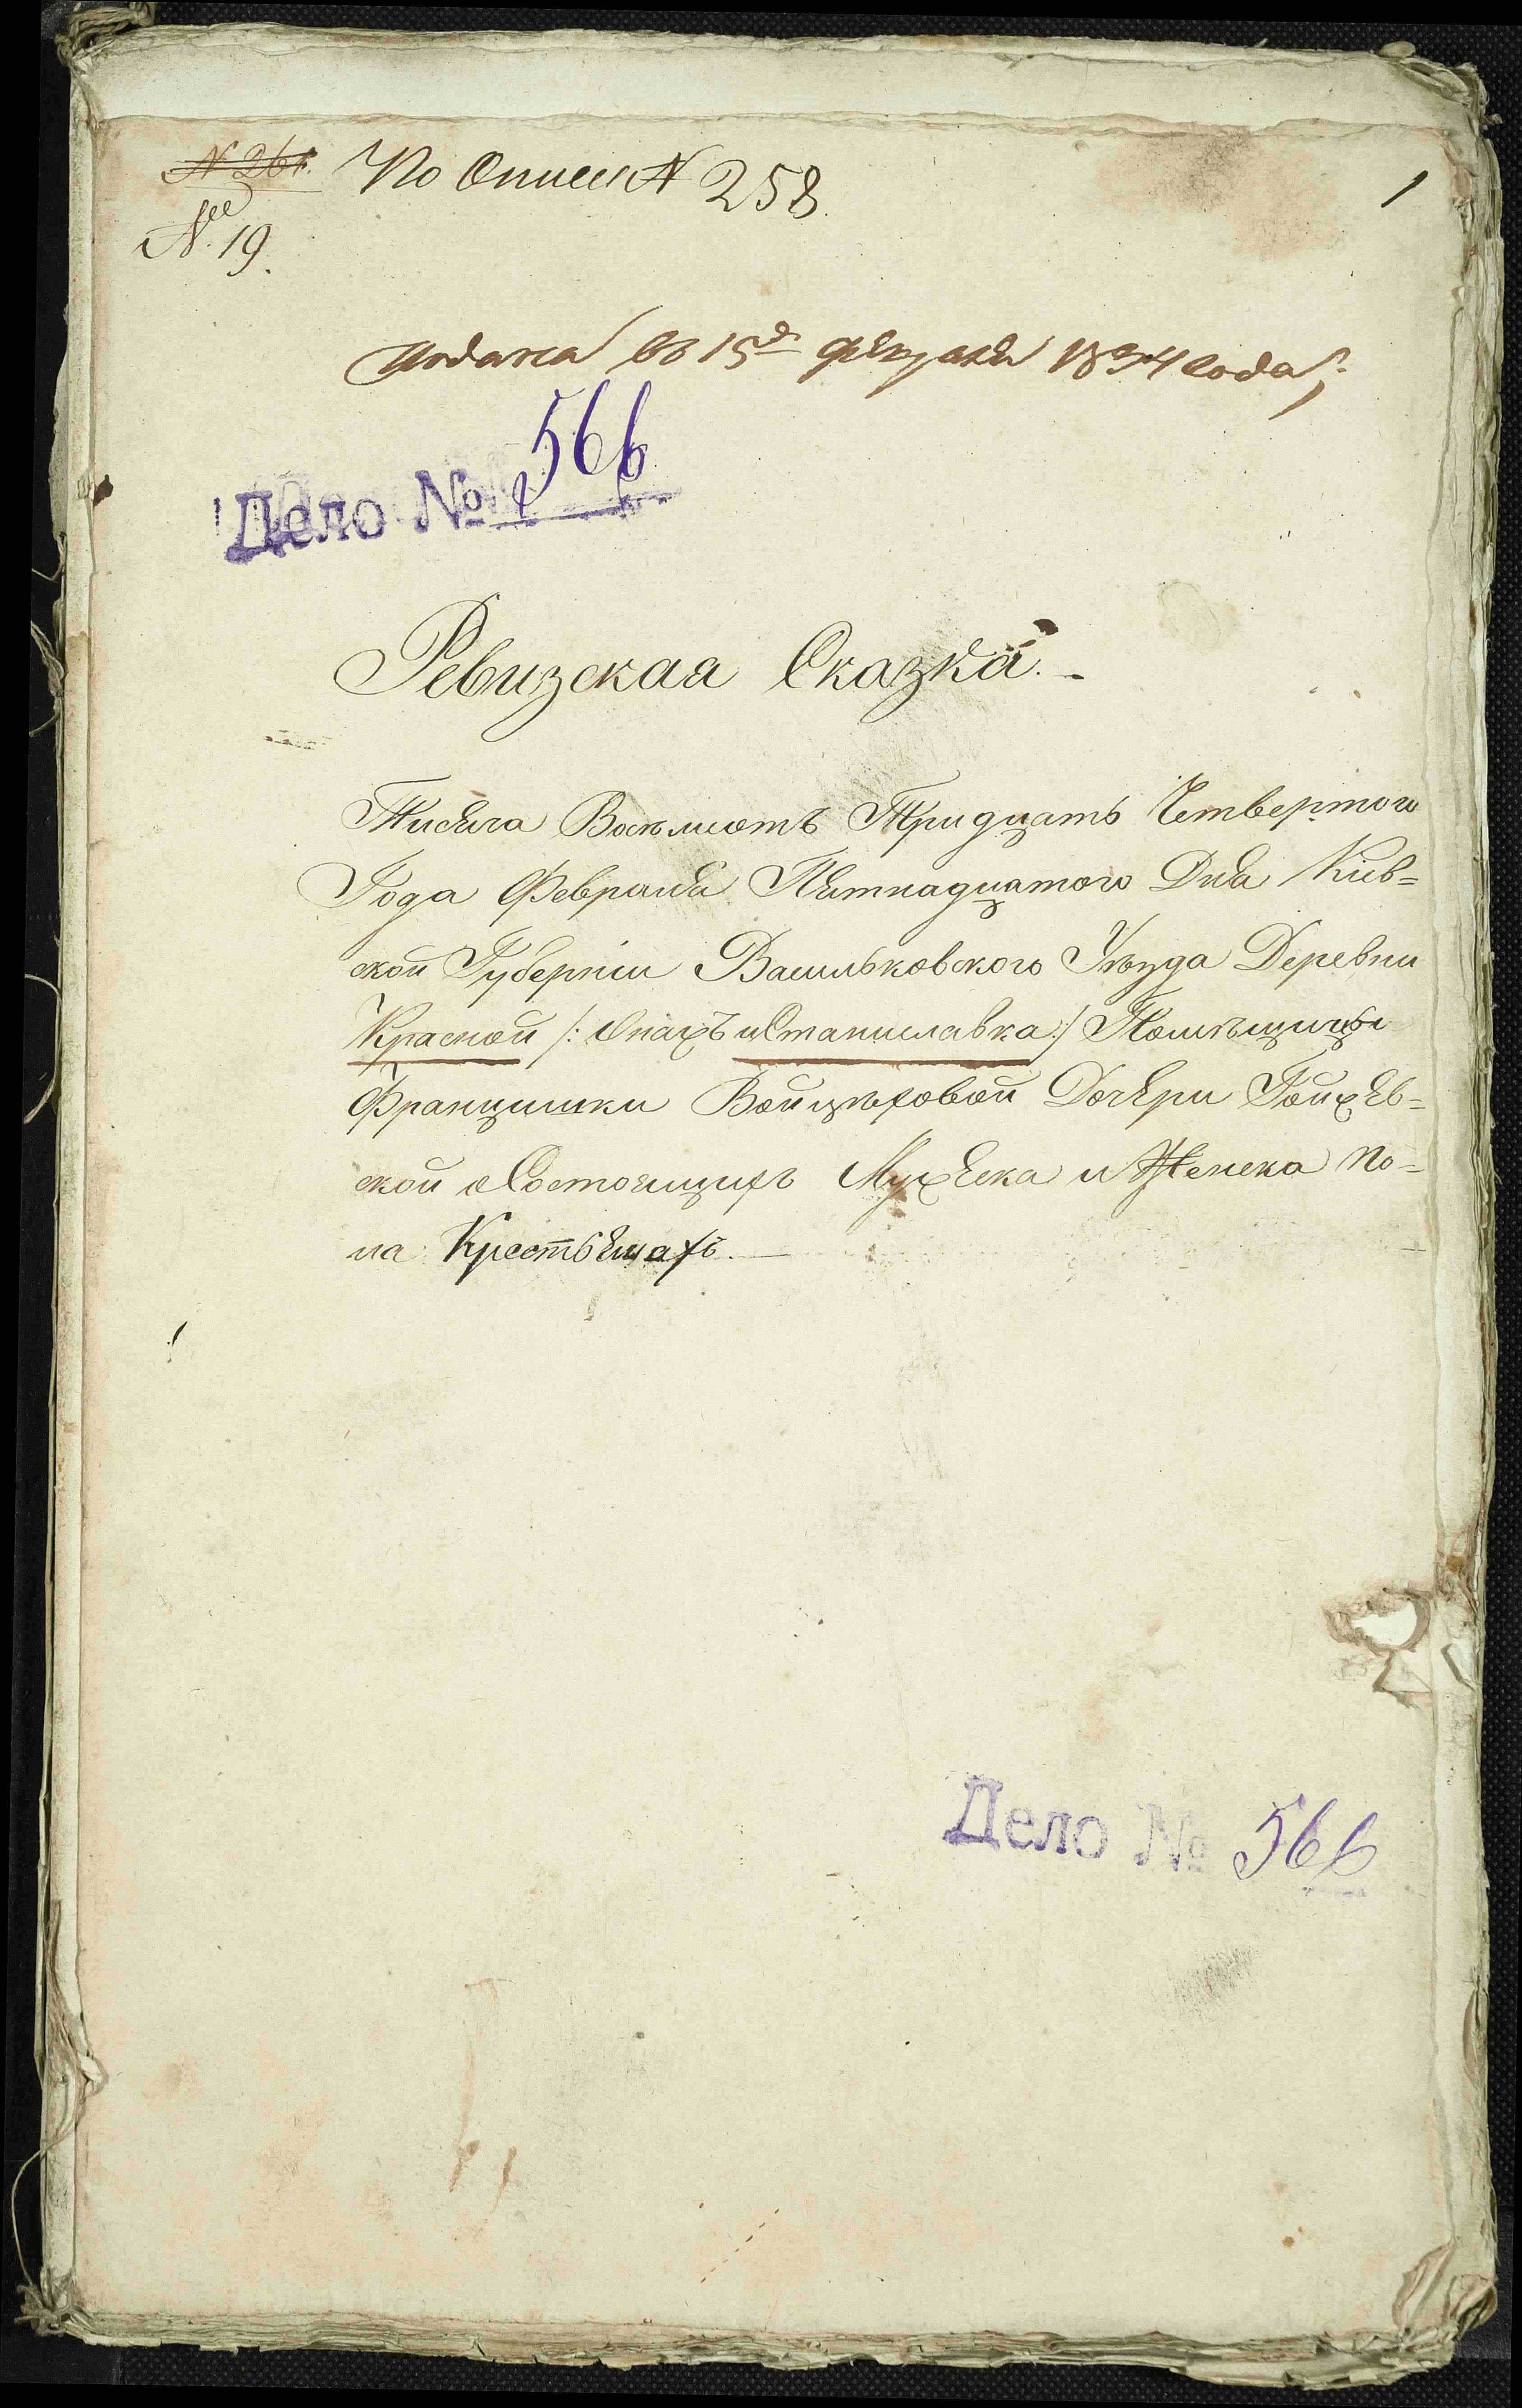 № 261.
По Описи № 258.
1
№ 19.
подана въ 15 д февраля 1834 года;
Дело № 566
Ревизская Сказка.
Тисяча Восемсотъ Тридцать Четвертого
Года Февраля Пятнадцатого Дня Киев=
ской Губерніи Васильковского Уѣзда Деревни
Красной /: Онажъ и Станиславка :/ Помѣщицы
Францишки Войцѣховой Дочери
ской Состоящихъ Мужеска и Женска по=
ла Крестьянахъ.
Дело № 566